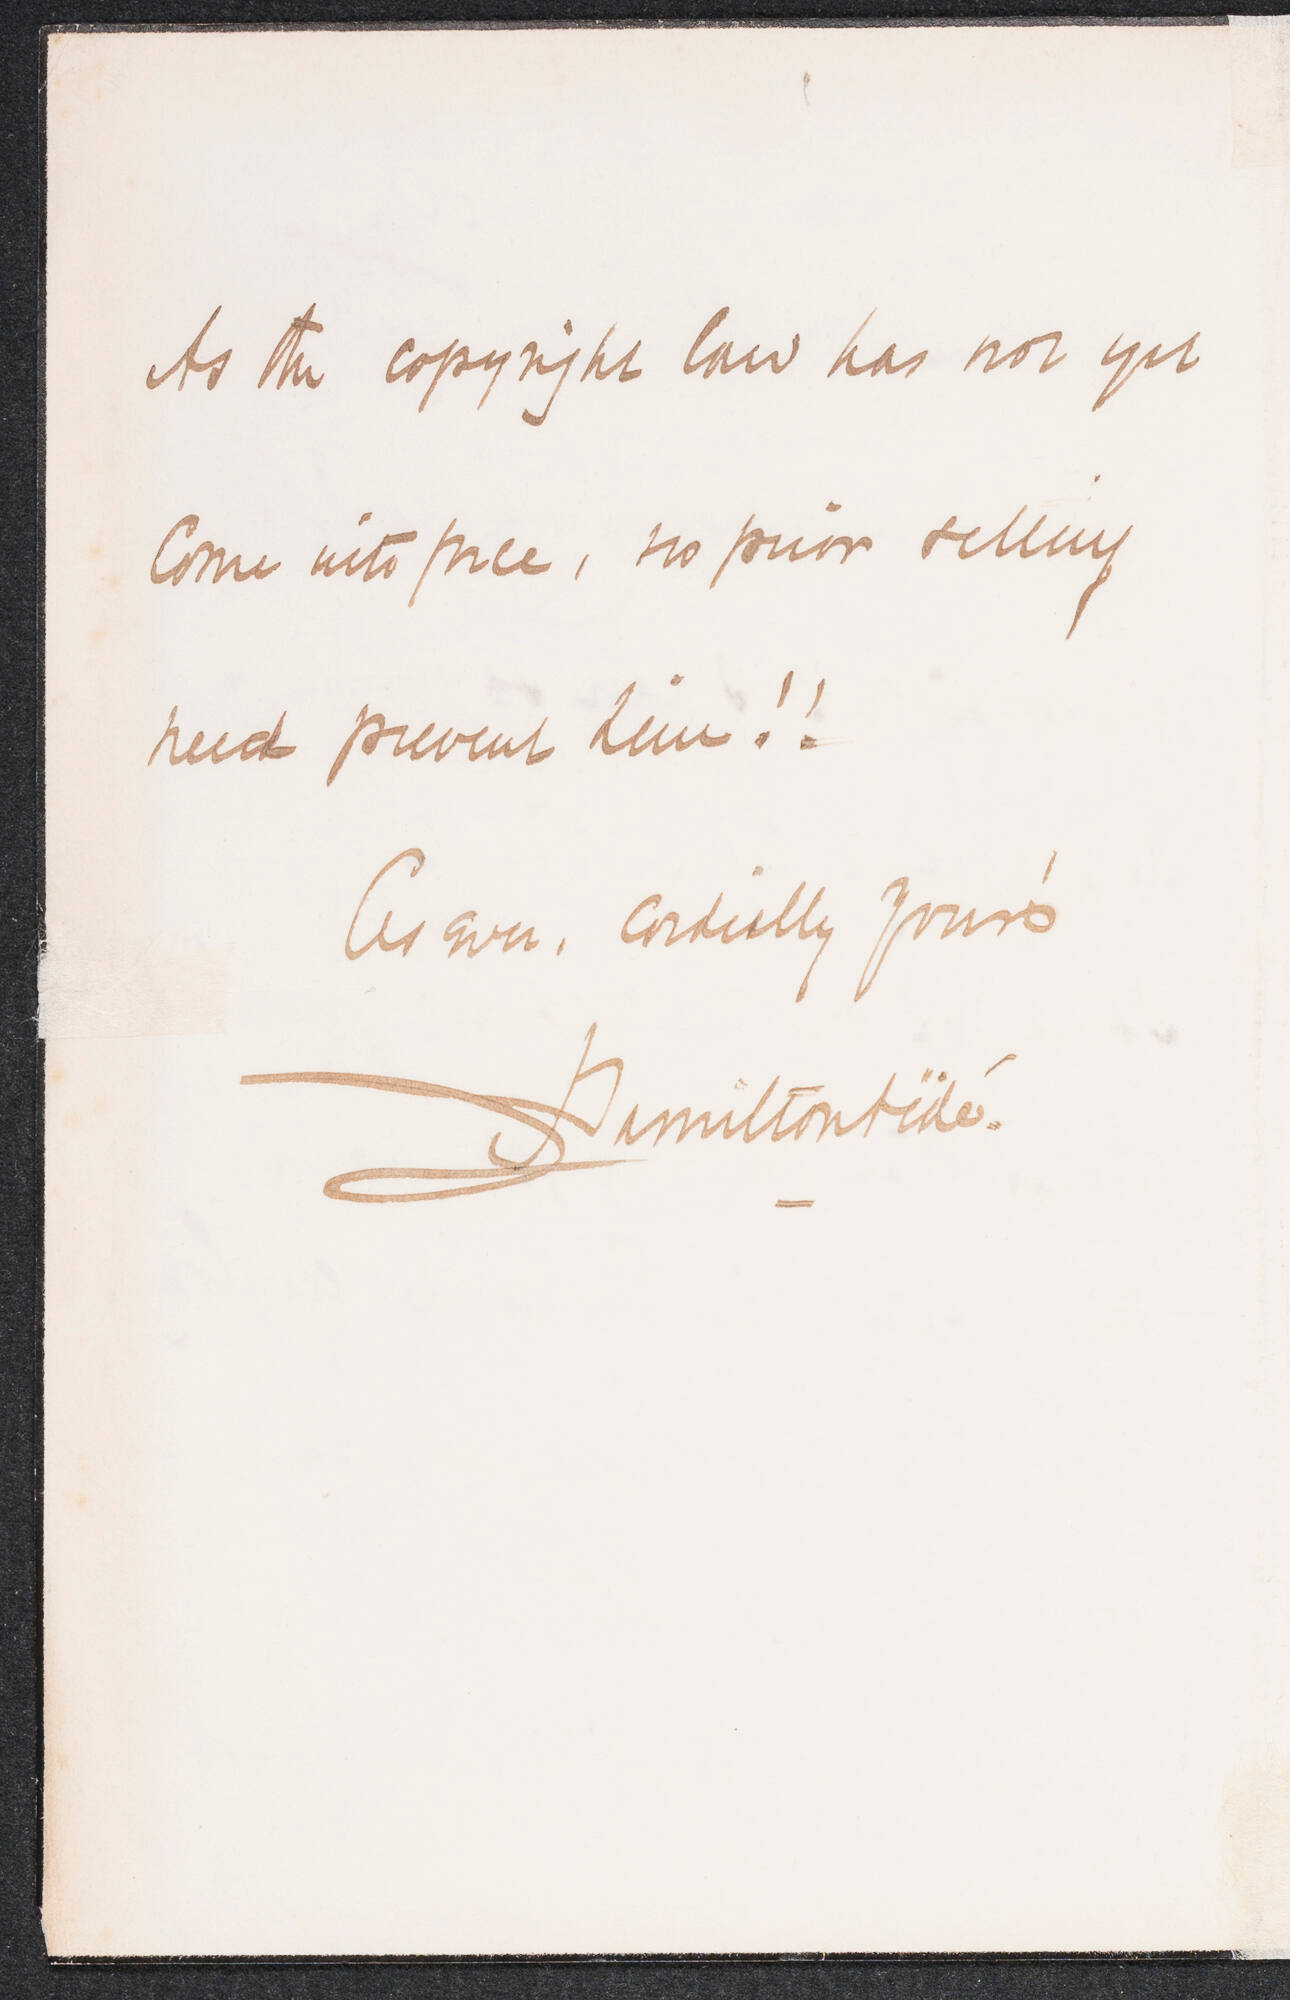 As the copyright law has not yet
come into force, no prior selling
need prevent him!!
As ever, cordially your's
Hamilton Aïdé.